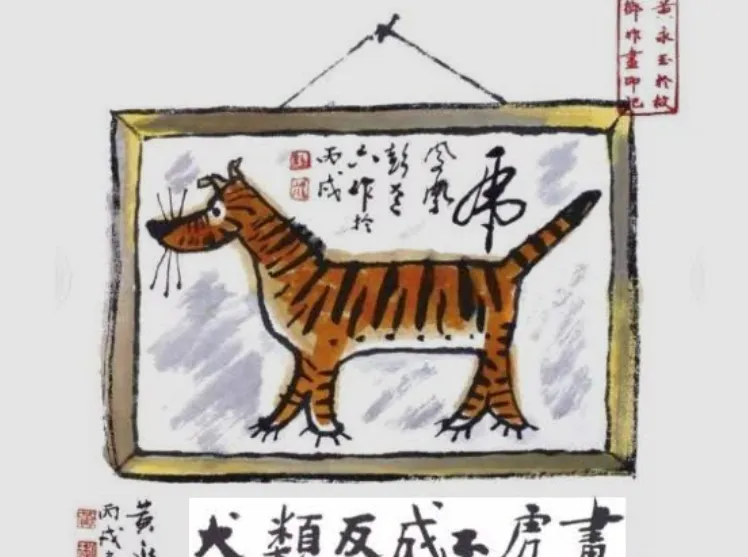 黃永玉於故
鄉作畫印記
虎
鳳凰
彭老
六作於
丙戌
畫虎不成反類犬
黄永
丙戌